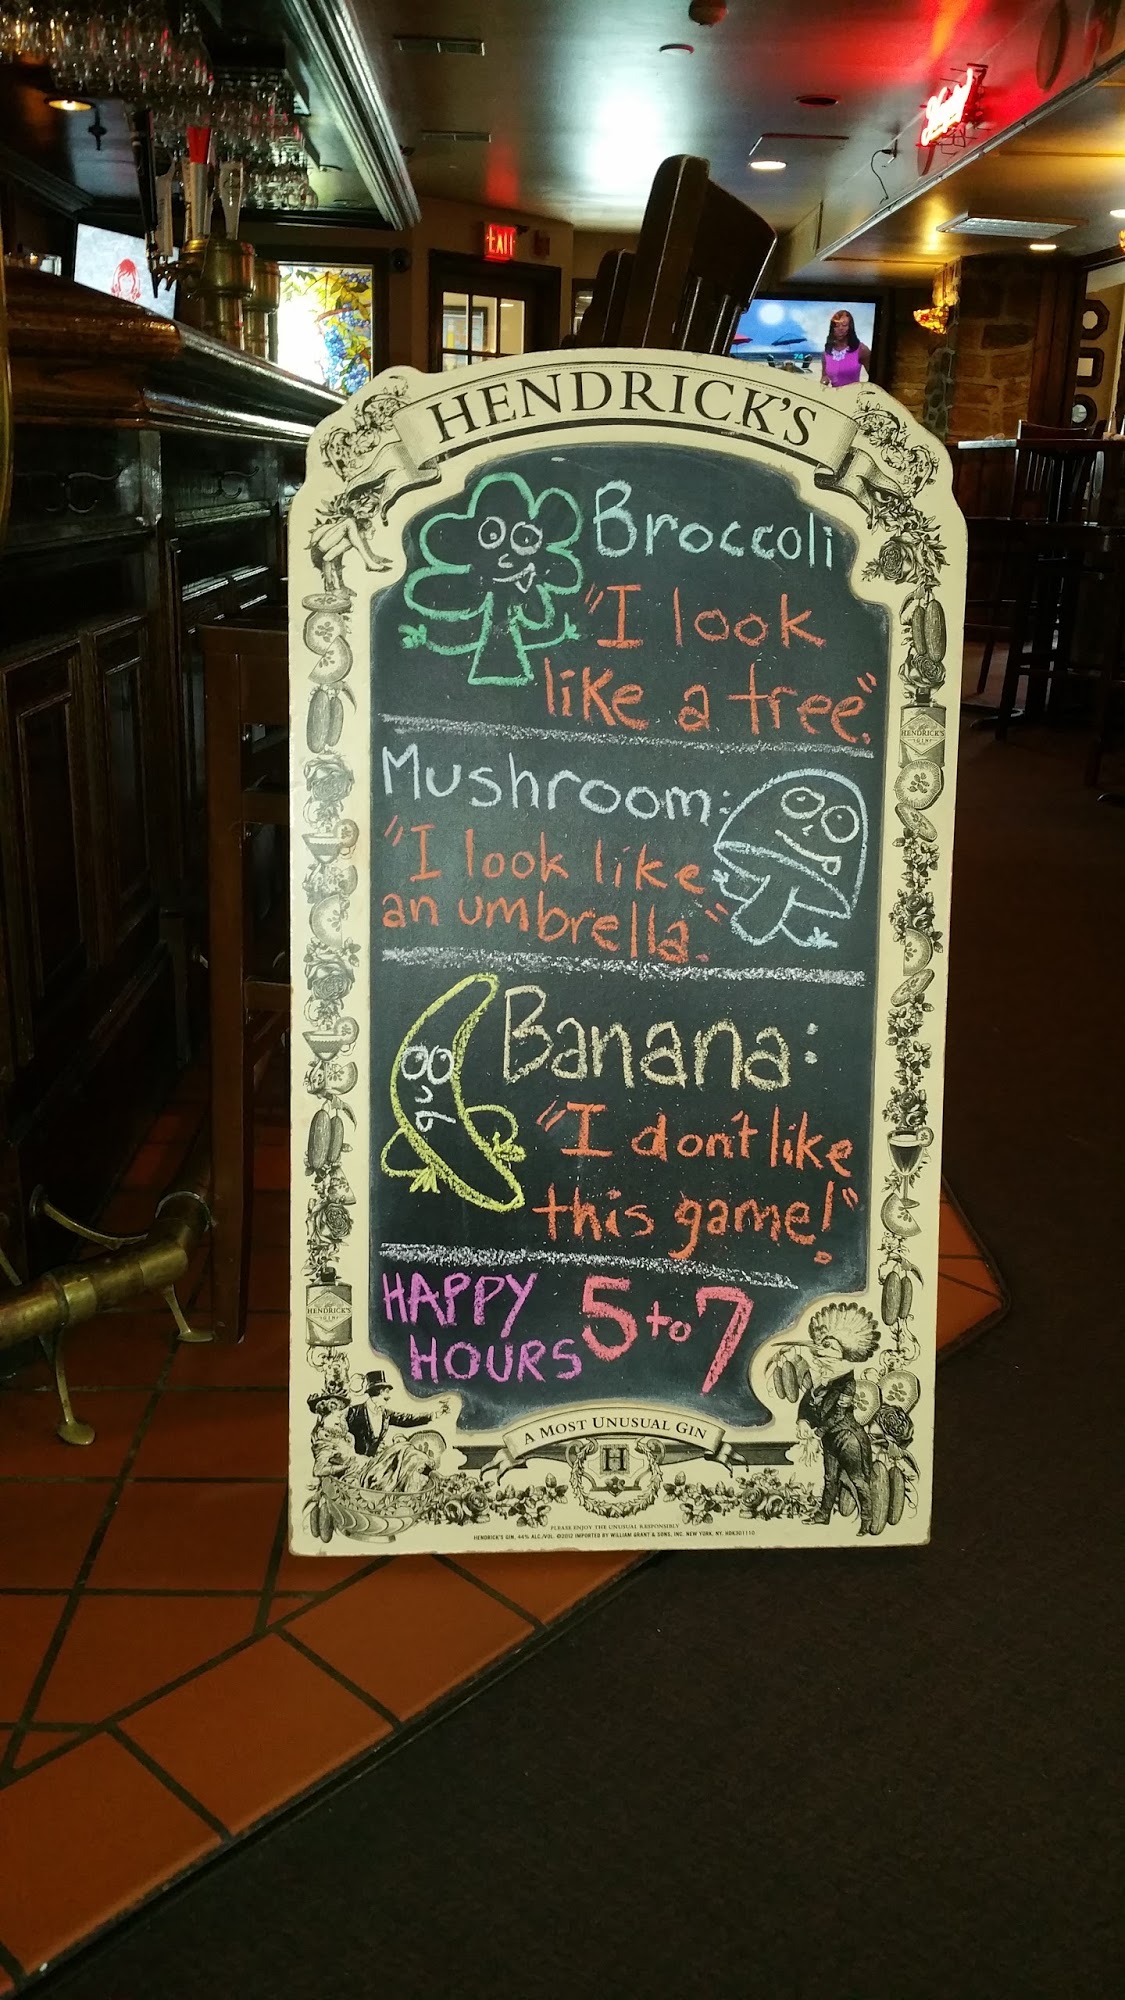 EXIT
HENDRICK'S
Broccoli
"I look
like a tree".
Mushroom:
"I look like
an umbrella."
Banana:
"I don't like
this game!"
HAPPY
HOURS 5 to 7
HENDRICK'S
GIN
HENDRICK'S
GIN
A MOST UNUSUAL GIN
H
PLEASE ENJOY THE UNUSUAL RESPONSIBLY
HENDRICK'S GIN, 44% ALC./VOL. ©2012 IMPORTED BY WILLIAM GRANT & SONS, INC. NEW YORK, NY. HDK301110